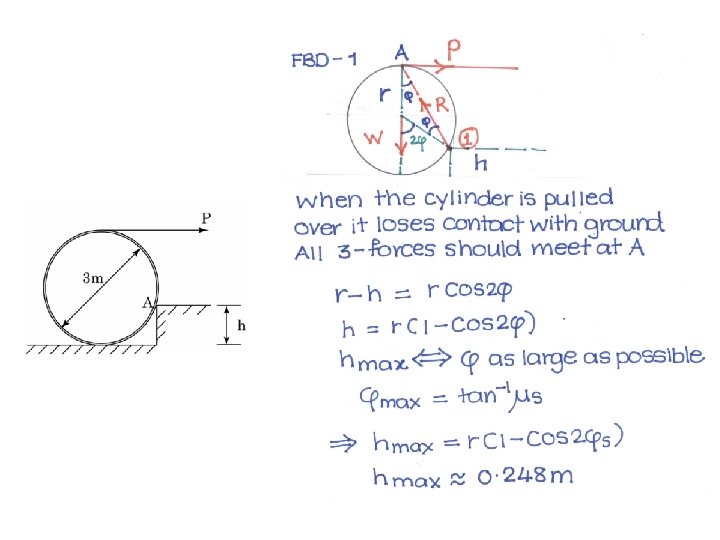 FBD-1
A
P
r
φ
R
W
2φ
φ
1
h
P
3 m
A
h
when the cylinder is pulled
over it loses contact with ground
All 3-forces should meet at A
r-h = r cos2φ
h = r(1-cos2φ)
hmax ⟺ φ as large as possible
φmax = tan⁻¹μs
⇒ hmax = r(1-cos2φs)
hmax ≈ 0.248m